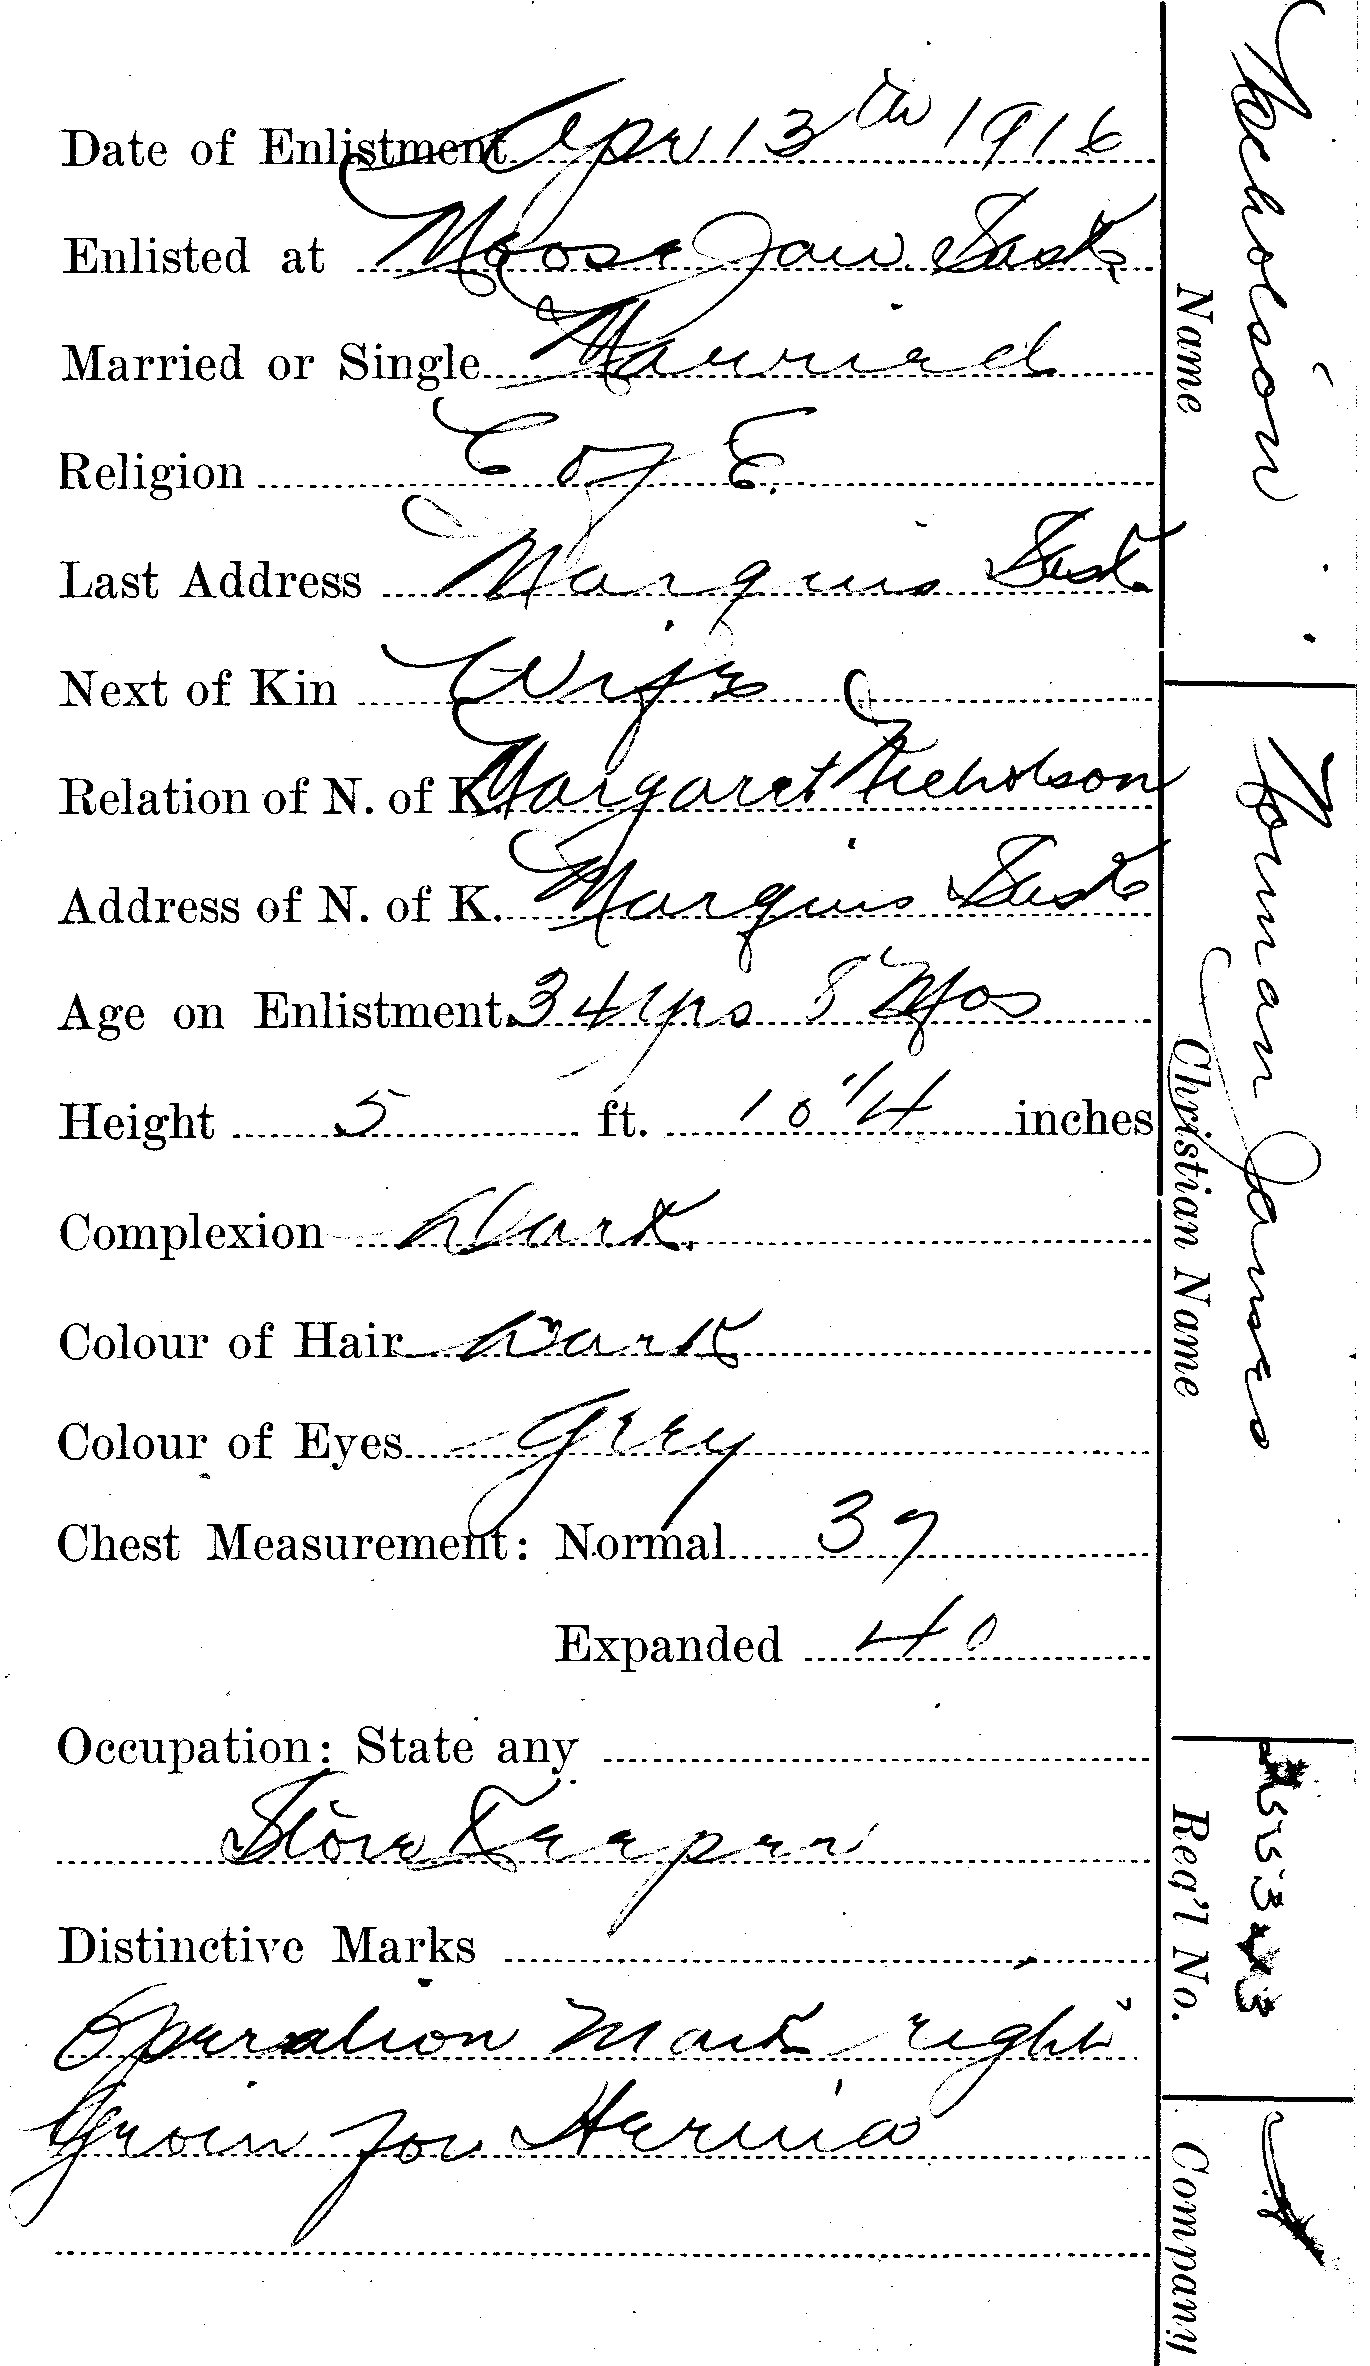 Date of Enlistment Apr 13th 1916
Enlisted at Moose Jaw Sask
Married or Single Married
Religion C of E.
Last Address Marquis Sask
Next of Kin Wife
Relation of N. of K. Margaret Nicholson
Address of N. of K. Marquis Sask
Age on Enlistment 34 yrs 8 Mos
Height 5 ft. 10 1/4 inches
Complexion Dark.
Colour of Hair Dark
Colour of Eyes Grey
Chest Measurement: Normal 37
Expanded 40
Occupation: State any
Store Keeper
Distinctive Marks
Operation Mark right
Groin for Hernia
Nicholson
Name
Norman James
Christian Name
Reg'l No.
Company